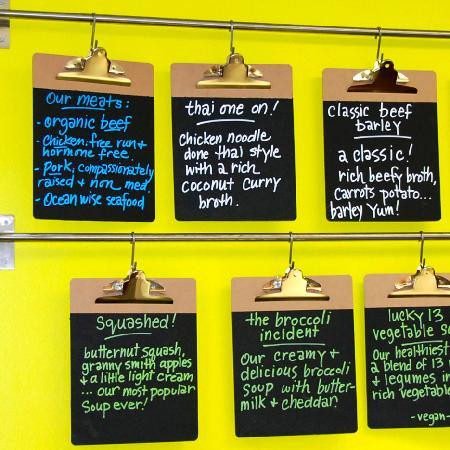 Our meats:
- organic beef
- Chicken, free run +
hormone free.
- Pork, compassionately
raised + non med.
- Ocean wise seafood
thai one on!
Chicken noodle
done thai style
with a rich
coconut curry
broth.
classic beef
barley
a classic!
rich beefy broth,
carrots potato...
barley Yum!
Squashed!
butternut squash,
granny smith apples
+ a little light cream
... our most popular
Soup ever!
the broccoli
incident
Our creamy +
delicious broccoli
soup with butter-
milk + cheddar.
lucky 13
vegetable
Our healthiest
a blend of 13
+ legumes in
rich vegetable
-vegan-